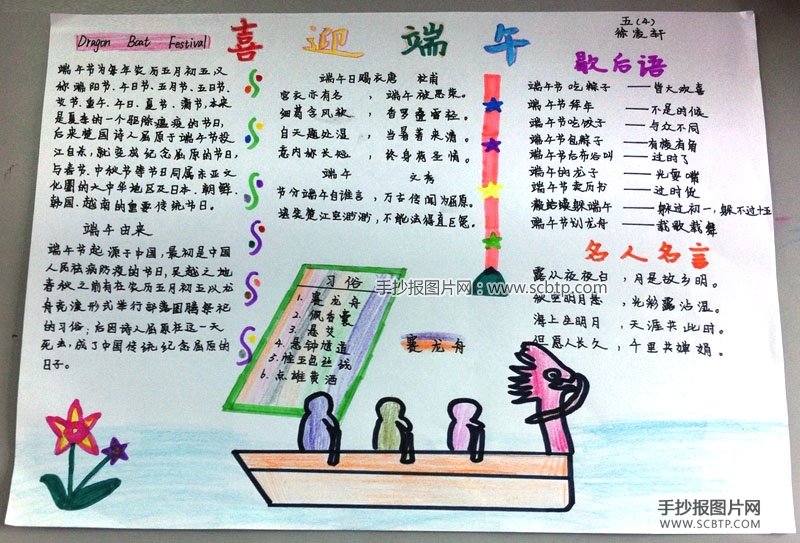 Dragon Boat Festival
喜迎端午
五(4)
徐凌轩
端午节为每年农历五月初五,又
称端阳节、午日节、五月节、五日节、
艾节、重午、午日、夏节、蒲节,本来
是夏季的一个驱除瘟疫的节日,
后来楚国诗人屈原于端午节投
江自杀,就变成纪念屈原的节日,
与春节、中秋节等节日同属东亚文
化圈的大中华地区及日本、朝鲜、
韩国、越南的重要传统节日。
端午由来
端午节起源于中国,最初是中国
人民祛病防疫的节日,吴越之地
春秋之前有在农历五月初五以龙
舟竞渡形式举行部落图腾祭祀
的习俗;后因诗人屈原在这一天
死去,成了中国传统纪念屈原的
日子。
端午日赐衣唐 杜甫
宫衣亦有名,端午被恩荣。
细葛含风软,香罗叠雪轻。
自天题处湿,当暑著来清。
意内称长短,终身荷圣情。
端午 文秀
节分端午自谁言,万古传闻为屈原。
堪笑楚江空渺渺,不能洗得直臣冤。
歇后语
端午节吃粽子——皆大欢喜
端午节拜年——不是时候
端午节吃饺子——与众不同
端午节包粽子——有棱有角
端午节后布谷叫——过时了
端午的龙子——光耍嘴
端午节卖历书——过时货
躲端午——躲过初一,躲不过十五
端午节划龙舟——载歌载舞
名人名言
露从今夜白,月是故乡明。
明月,光彩露沾湿。
海上生明月,天涯共此时。
但愿人长久,千里共婵娟。
习俗
1. 赛龙舟
2. 佩香囊
3. 悬艾
4. 悬钟馗道
5. 帷五色丝线
6. 点雄黄酒
赛龙舟
手抄报图片网:www.scbtp.com
手抄报图片网
WWW.SCBTP.COM